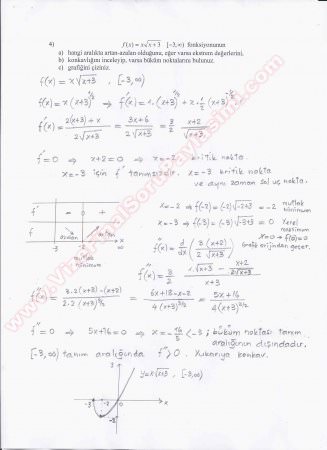 4) f(x) = x√x+3 [-3,∞) fonksiyonunun
a) hangi aralıkta artan-azalan olduğunu, eğer varsa ekstrem değerlerini,
b) konkavlığını inceleyip, varsa büküm noktalarını bulunuz.
c) grafiğini çiziniz.
f(x) = x√x+3 , [-3,∞)
f(x) = x(x+3)^1/2 ⇒ f'(x) = 1.(x+3)^1/2 + x.1/2 (x+3)^-1/2
f'(x) = 2(x+3)+x / 2√x+3 = 3x+6 / 2√x+3 = 3/2 x+2 / √x+3
f'=0 ⇒ x+2=0 ⇒ x=-2 kritik nokta.
x=-3 için f' tanımsızdır. x=-3 kritik nokta
ve aynı zaman sol uç nokta.
-3 -2 ∞
f' - 0 +
f azalan artan
mutlak minimum
x=-2 ⇒ f(-2) = (-2)√-2+3 = -2 mutlak minimum
x=-3 ⇒ f(-3) = (-3)√-3+3 = 0 Yerel maksimum
x=0 ⇒ f(0)=0
Grafik orijinden geçer.
f''(x) = d/dx ( 3(x+2) / 2√x+3 )
f''(x) = 3/2 1.√x+3 - x+2 / 2√x+3 / x+3
f''(x) = 3.2(x+3)-(x+2) / 2.2(x+3)^3/2 = 6x+18-x-2 / 4(x+3)^3/2 = 5x+16 / 4(x+3)^3/2
f''=0 ⇒ 5x+16=0 ⇒ x=-16/5 < -3 ; büküm noktası tanım
aralığının dışındadır.
[-3,∞) tanım aralığında f''>0. Yukarıya konkav.
y=x√x+3 , [-3,∞)
-3 -2 x
-2